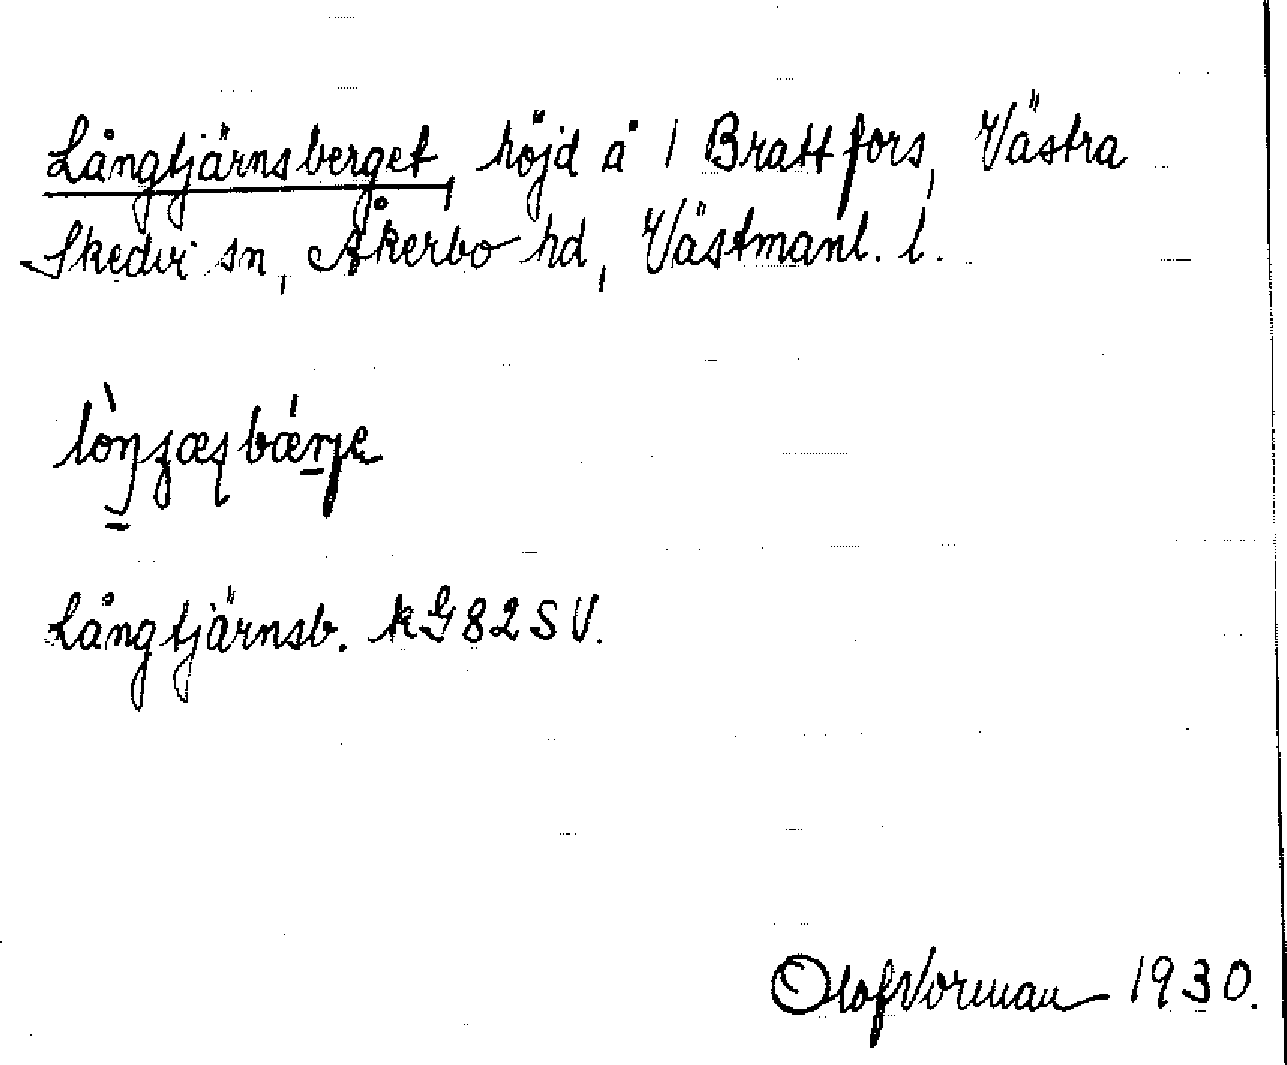 Långtjärnsberget, höjd å 1 Brattfors, Västra
Skedvi sn, Åkerbo hd, Västmanl. l.
Långtjärnsb. kG82SV.
Olof Vorman 1930.